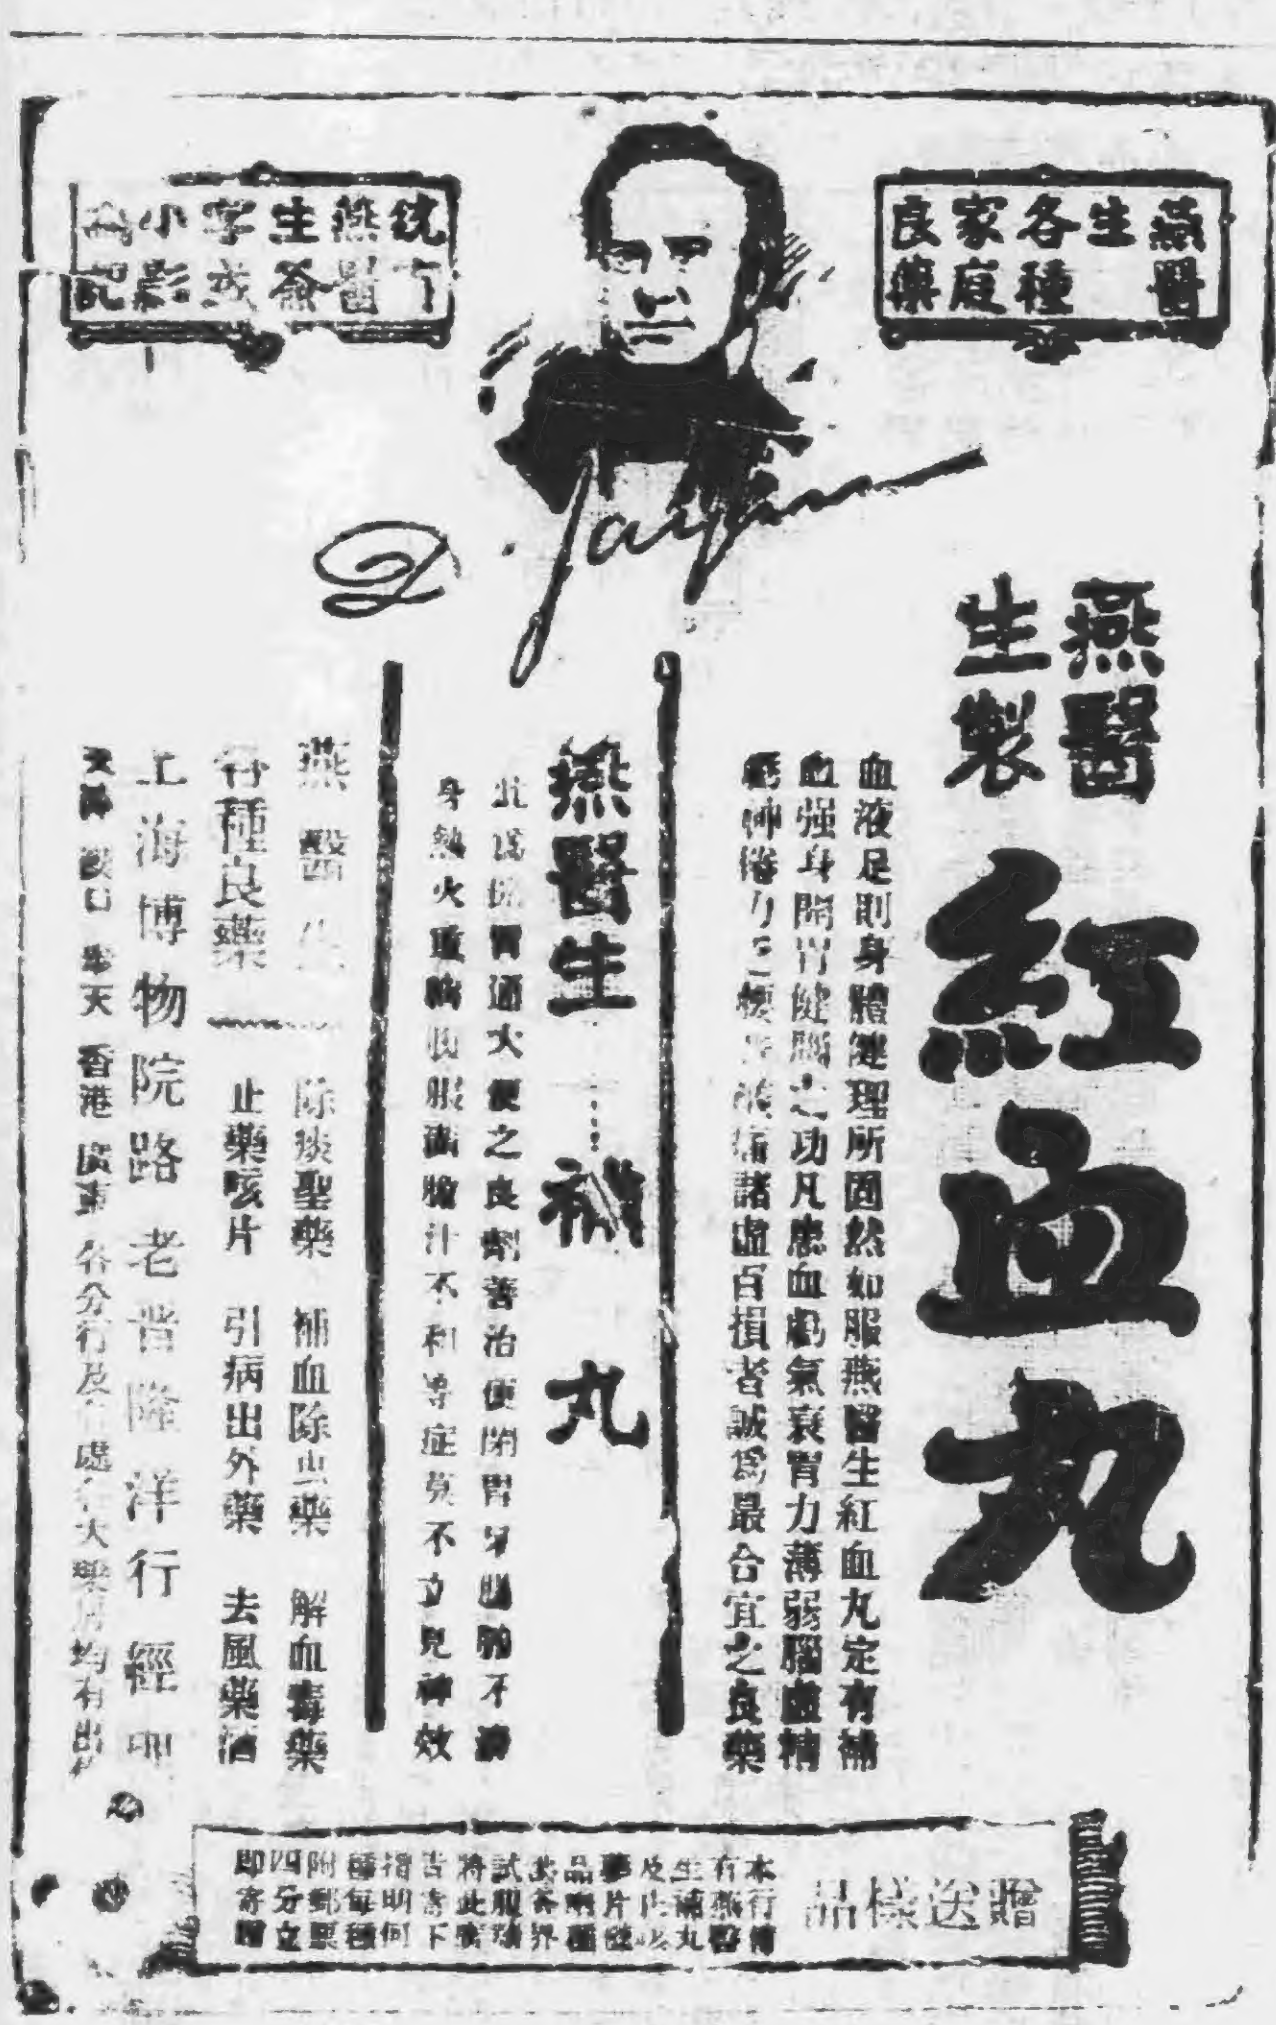 燕醫
生
各種
家庭
良藥
統
燕醫
生簽
字或
小影
為記
燕醫
生製
紅血丸
血液足則身體健理所固然如服燕醫生紅血丸定有補
血强身開胃健腦之功凡患血虧氣衰胃力薄弱腦虛精
虧神倦力痛諸虛百損者誠爲最合宜之良藥
燕醫生補丸
此爲胃通大便之良劑善治便閉胃牙不清
身熱火重服滿膽汁不和等症莫不立見神效
燕醫生
各種良藥
除痰聖藥 補血除虫藥 解血毒藥
止藥咳片 引病出外藥 去風藥酒
上海博物院路老晋隆洋行經理
天津 漢口 奉天 香港 廣東 各分行及各處各大藥房均有出售
贈送樣品
本行備
有燕醫
生補丸
及止咳
藥片
品兩種
試服
將此廣
告寄下
指明何
種每種
附郵票
四分立
即寄贈